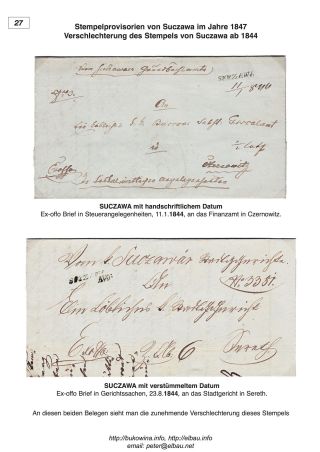 27
Stempelprovisorien von Suczawa im Jahre 1847
Verschlechterung des Stempels von Suczawa ab 1844
Vom Suczawaer
SUCZAWA
An
k. k.
in
Czernowitz
Exoffo
SUCZAWA mit handschriftlichem Datum
Ex-offo Brief in Steuerangelegenheiten, 11.1.1844, an das Finanzamt in Czernowitz.
Vom k. Suczawær Bezirksgerichte
AUG:
An No: 3381.
Ein Löbliches k. Bezirksgericht
Exoffo 6 Sereth
SUCZAWA mit verstümmeltem Datum
Ex-offo Brief in Gerichtssachen, 23.8.1844, an das Stadtgericht in Sereth.
An diesen beiden Belegen sieht man die zunehmende Verschlechterung dieses Stempels
http://bukowina.info, http://eibau.info
email: peter@eibau.net